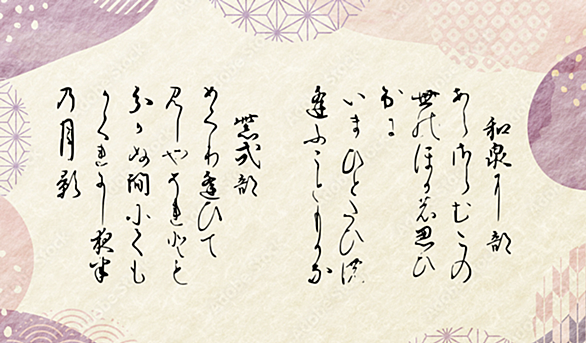 和泉式部
あらさらむこの
世のほかの思ひ
出に
いまひとたひの
逢ふこともかな
紫式部
めくり逢ひて
見しやそれとも
わかぬ間にくも
かくれにし夜半
乃月影